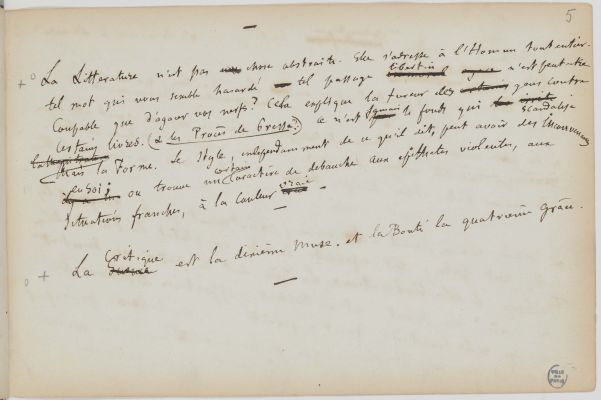 5
La Littérature n'est pas chose abstraite. Elle s'adresse à l'Homme tout entier.
tel mot qui vous semble hasardé tel passage libertin n'est peut-être
Coupable que d'agacer vos nerfs? Cela explique la fureur des gens contre
certains livres. (& les Procès de Presse.) ce n'est jamais le fonds qui scandalise
Mais la Forme. Le Style, indépendamment de ce qu'il dit, peut avoir des inconvenances
en soi; on trouve un certain Caractère de débauche aux épithètes violentes, aux
Situations franches, à la Couleur vraie
La Critique est la dixième Muse. et la Bonté la quatrième grâce.
VILLE DE PARIS